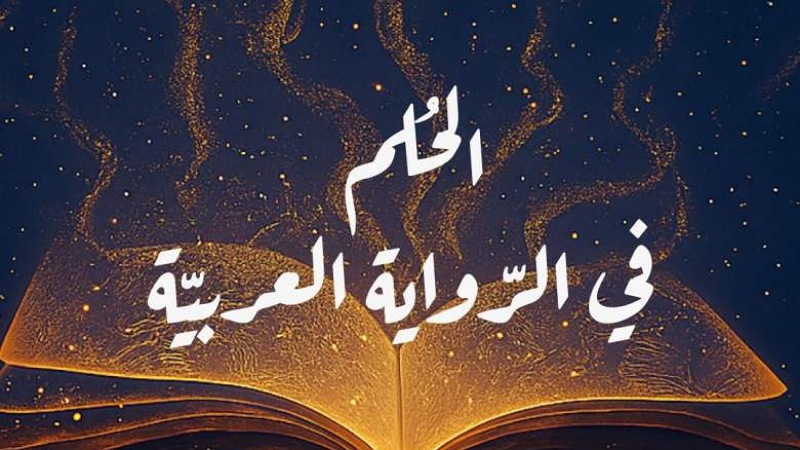 الحُلم
في الرّواية العربيّة